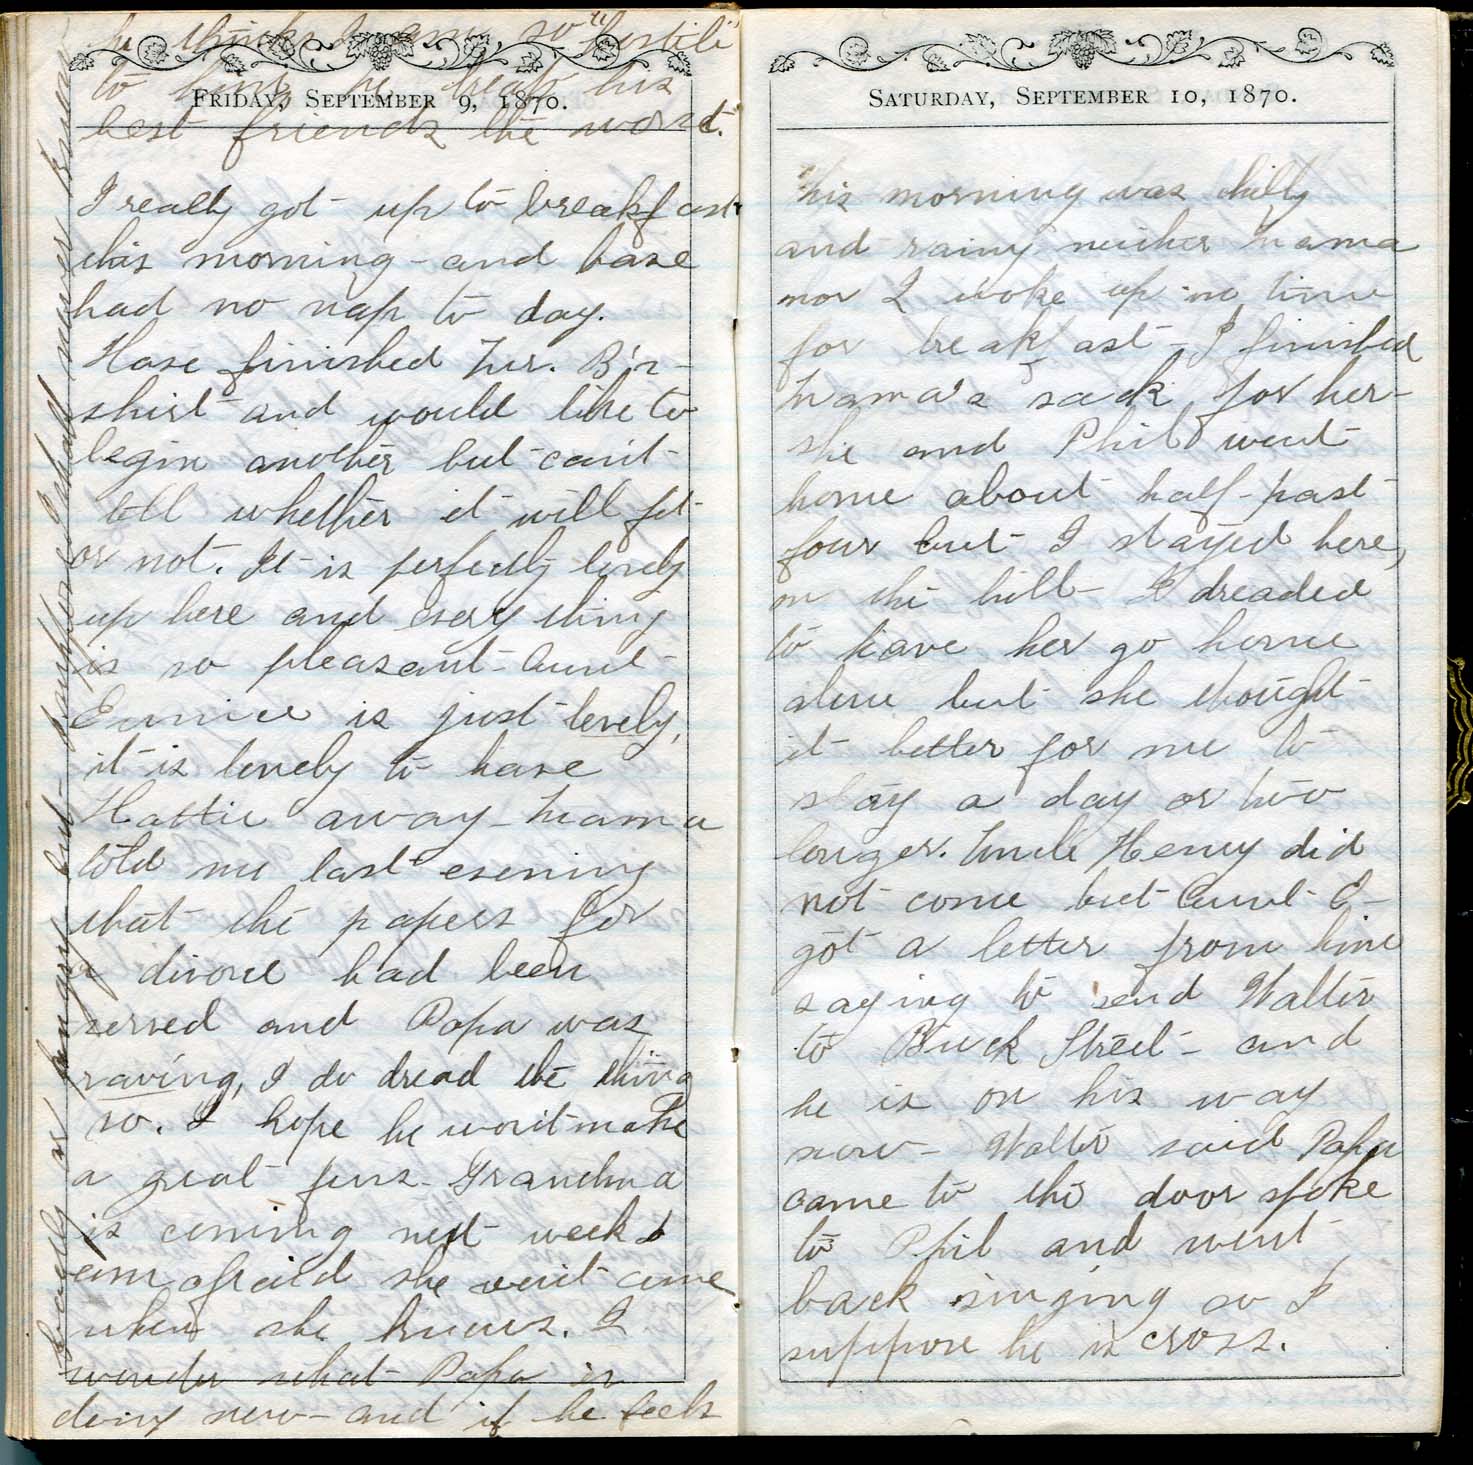 he thinks I am so "hostile"
to him, he treats his
FRIDAY, SEPTEMBER 9, 1870.
best friends the worst.
I really got up to breakfast
this morning - and have
had no nap to day.
Have finished Mr. B's
shirt and would like to
begin another but can't
tell whether it will fit
or not. It is perfectly lovely
up here and every thing
is so pleasant - Aunt
Eunice is just lovely,
it is lovely to have
Hattie away - Mama
told me last evening
that the papers for
a divorce had been
served and Papa was
raving, I do dread the thing
so. I hope he won't make
a great fuss - Grandma
is coming next week I
am afraid she won't come
when she knows. I
wonder what Papa is
doing now - and if he feels
badly or angry but I shall never know
SATURDAY, SEPTEMBER 10, 1870.
This morning was chilly
and rainy neither Mama
nor I woke up in time
for breakfast - I finished
Mama's sack for her -
she and Phil went
home about half-past
four but I stayed here,
on the hill - I dreaded
to have her go home
alone but she thought
it better for me to
stay a day or two
longer. Uncle Henry did
not come but Aunt E -
got a letter from him
saying to send Walter
to Buck Street - and
he is on his way
now - Walter said Papa
came to the door spoke
to Phil and went
back singing so I
suppose he is cross.